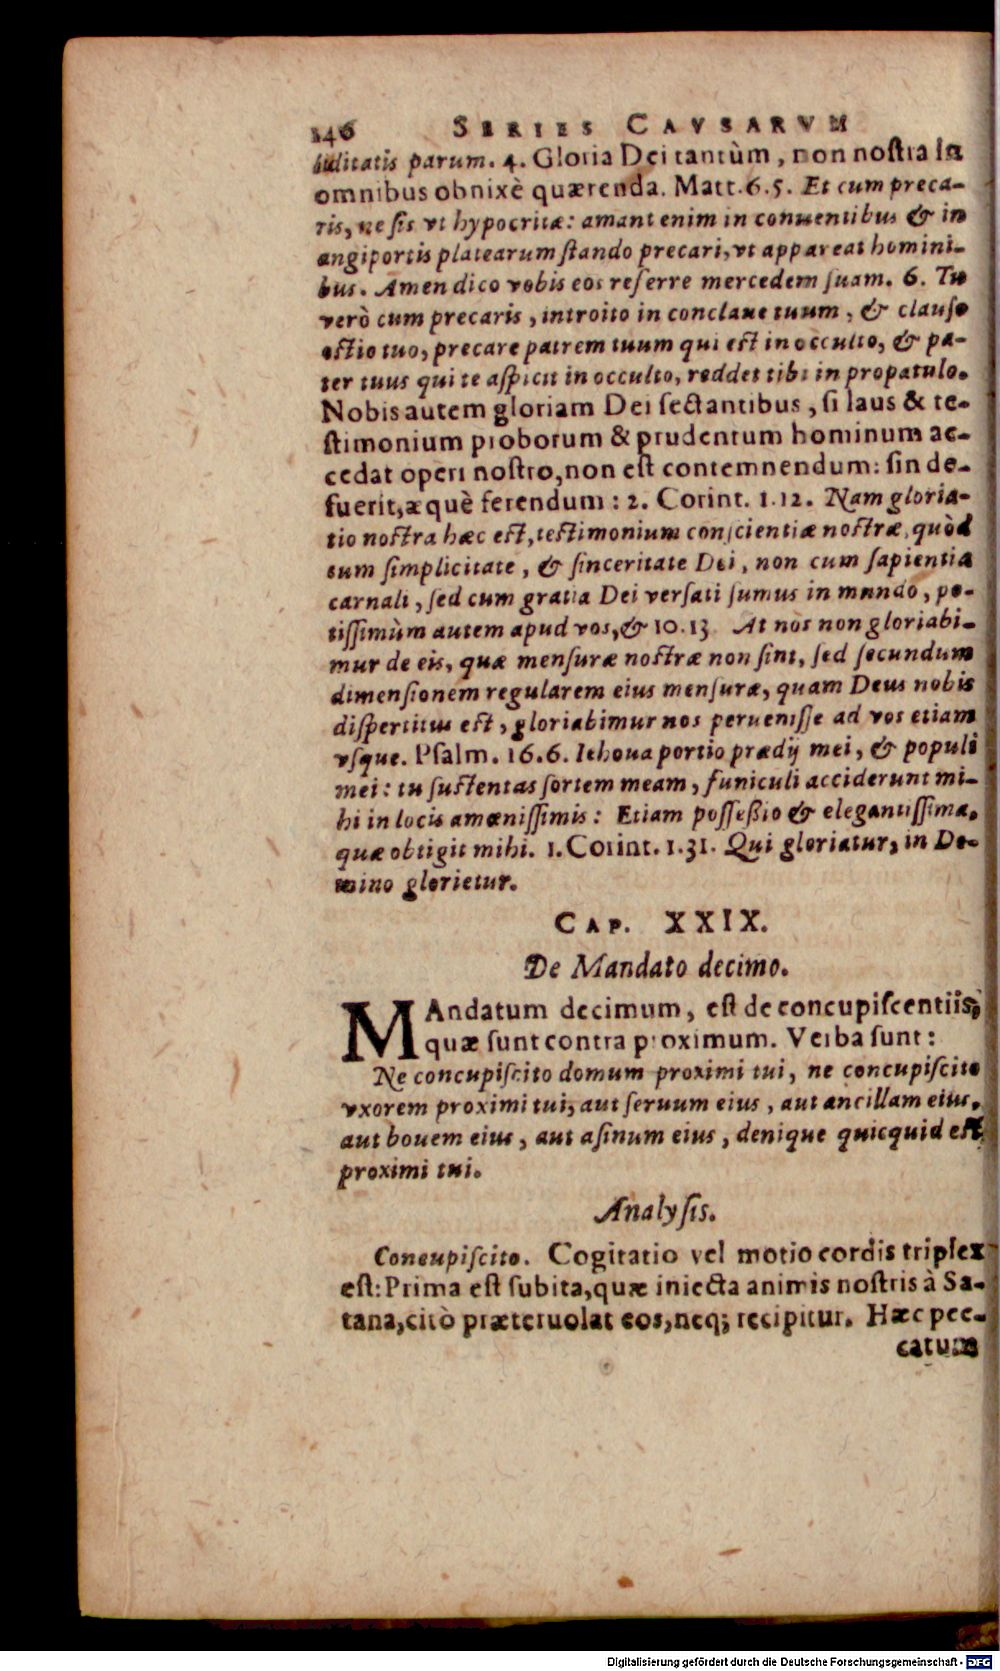 146 SERIES CAVSARVM
parum. 4. Gloria Dei tantùm, non nostra in
omnibus obnixè quærenda. Matt. 6. 5. Et cum preca-
ris, ne sis vt hypocritæ: amant enim in conuentibus & in
angiportis platearum stando precari, vt appareat homini-
bus. Amen dico vobis eos referre mercedem suam. 6. Tu
verò cum precaris, introito in conclaue tuum, & clauso
ostio tuo, precare patrem tuum qui est in occulto, & pa-
ter tuus qui te aspicit in occulto, reddet tibi in propatulo.
Nobis autem gloriam Dei sectantibus, si laus & te-
stimonium proborum & prudentum hominum ac-
cedat operi nostro, non est contemnendum: sin de-
fuerit, æquè ferendum: 2. Corint. 1. 12. Nam gloria-
tio nostra hæc est, testimonium conscientiæ nostræ, quòd
cum simplicitate, & sinceritate Dei, non cum sapientia
carnali, sed cum gratia Dei versati sumus in mundo, po-
tissimùm autem apud vos, & 10. 13 At nos non gloriabi-
mur de eis, quæ mensuræ nostræ non sint, sed secundum
dimensionem regularem eius mensuræ, quam Deus nobis
dispertitus est, gloriabimur nos peruenisse ad vos etiam
vsque. Psalm. 16. 6. Iehoua portio prædij mei, & populi
mei: tu sustentas sortem meam, funiculi acciderunt mi-
hi in locis amœnissimis: Etiam possessio & elegantissima,
quæ obtigit mihi. 1. Corint. 1. 31. Qui gloriatur, in Do-
mino glorietur.
CAP. XXIX.
De Mandato decimo.
MAndatum decimum, est de concupiscentiis,
quæ sunt contra proximum. Verba sunt:
Ne concupiscito domum proximi tui, ne concupiscito
vxorem proximi tui, aut seruum eius, aut ancillam eius,
aut bouem eius, aut asinum eius, denique quicquid est
proximi tui.
Analysis.
Concupiscito. Cogitatio vel motio cordis triplex
est: Prima est subita, quæ iniecta animis nostris à Sa-
tana, citò præteruolat eos, neq; recipitur. Hæc pec-
catum
Digitalisierung gefördert durch die Deutsche Forschungsgemeinschaft - DFG